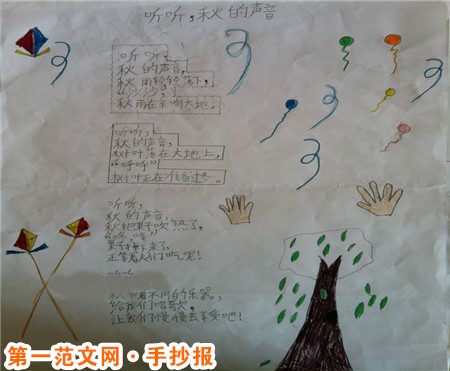 听听,秋的声音
听听,
秋的声音,
秋雨轻轻落下,
“沙沙”
秋雨在亲吻大地。
听听,
秋的声音,
树叶落在大地上,
“呼呼”
树叶正在准备过冬。
听听,
秋的声音,
秋把果子吹熟了,
果子掉下来了,
正等着人们吃呢!
……
不同的乐器,
给我们唱歌,
让我们慢慢去享受吧!
第一范文网·手抄报